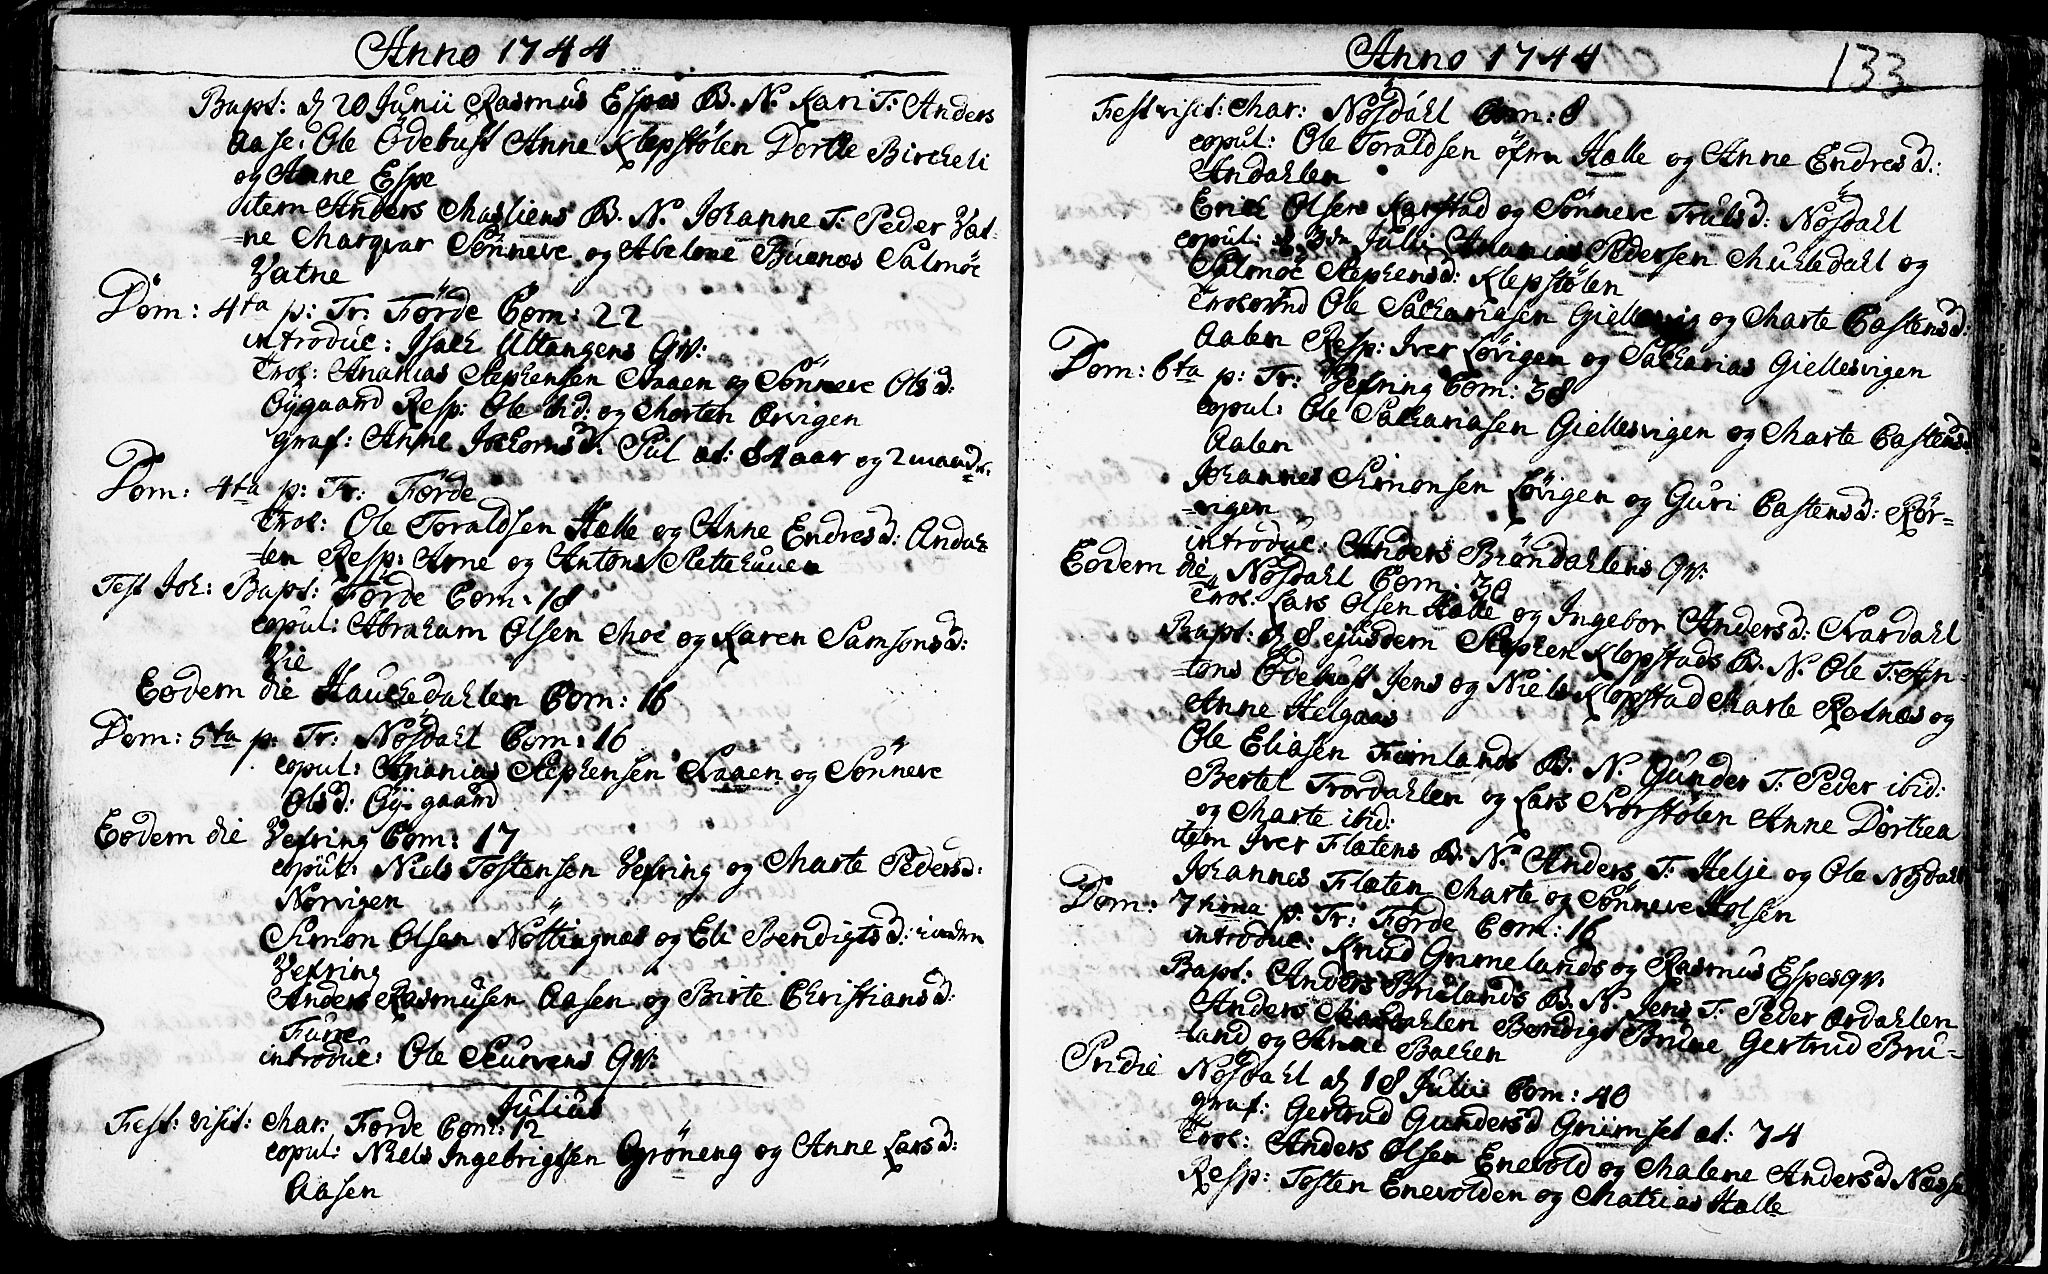 Anno 1744
Bapt: d 20 Junii Rasmus Espes B. N. Kari T: Anders
Aase, Ole Ödebust Anne Klepstølen Dorthe Birckeli
og Anne Espe
item Anders Masliens B. N. Johanne T: Peder Vat-
=ne Marqvar Sönneve og Abelone Buenæs Salmöe
Vatne
Dom: 4ta p: Tr: Förde Com: 22
introduc: Isach Ultangens Qv:
Trol: Ananias Stephensen Aaen og Sönneve Olsd:
Öygaard Resp: Ole ibd: og Morten Ervigen
graf: Anne Jocomsd: Piil æt: 84 aar og 2 maander
Dom: 4ta p: Tr: Förde
Trol: Ole Toraldsen Halle og Anne Endresd: Andah
=len Resp: Arne og Antons Slettehuuen
Fest Joh: Bapt: Förde Com: 18
copul: Abraham Olsen Moe og Karen Samsonsd:
Vie
Eodem die Hauckedahlen Com: 16
Dom: 5ta p: Tr: Nösdahl Com: 16
copul: Ananias Stephensen Aaen og Sönneve
Olsd: Öygaard
Eodem die Vefring Com: 17
copul: Niels Tostensen Vefring og Marte Pedersd:
Norvigen
Simon Olsen Nöttingnæs og Eli Bendigtsd:
Vefring
Anders Rasmusen Aasen og Birte Christiansd:
Furre
introduc: Ole Skurvens Qv:
Julius
Fest: visit: Mar: Förde Com: 12
copul: Niels Ingebrigtsen Gröneng og Anne Larsd:
Aasen
Anno 1744
133
Fest visit: Mar: Nösdahl Com: 8
copul: Ole Toraldsen öfra Halle og Anne Endresd:
Andahlen
Erich Olsen Karstad og Sönneve Trulsd: Nösdahl
copul: d 3de Julii Ananias Pedersen Mukledahl og
Salmöe Stephensd: Klepstölen
Trolov: Ole Sachariasen Giellesvig og Marte Castensd:
Aalen Resp: Iver Lövigen og Sacharias Giellesvigen
Dom: 6ta p: Tr: Vefring Com: 38
copul: Ole Sachariasen Giellesvigen og Marte Castensd
Aalen
Johannes Simonsen Lövigen og Guri Castensd: Rör=
=vigen
introduc: Anders Bröndahlens Qv:
Eodem die Nösdahl Com: 30
Trol: Lars Olsen Halle og Ingebor Andersd: Savrdahl
Bapt: d 8 ejusdem Stephen Klopstads B. N. Ole T: An-
=tons Ödebust Jens og Niels Klopstad Marte Rotnæs og
Anne Helgaas
Ole Eliasen Fimlands B. N. Gunder T: Peder ibid:
Bertel Trordahlen og Lars Svorstölen Anne Dorthea
og Marte ibid:
item Iver Flatens B: N. Anders T: Helje og Ole Nydahl
Johannes Flaten Marte og Sönneve Holsen
Dom: 7tima p: Tr: Förde Com: 16
introduc: Knud Grimelands og Rasmus Espes qv:
Bapt: Anders Brulands B. N. Jens T: Peder Ardahlen
Anders Mardahlen Bendigt Bruue Gertrud Bru-
=land og Anne Backen
Pridie Nösdahl d 18 Julii Com: 40
graf: Gertrud Gundersd Grimset æt: 74
Trol: Anders Olsen Enevold og Malene Andersd Næsse
Resp: Tosten Enevolden og Mathias Halle